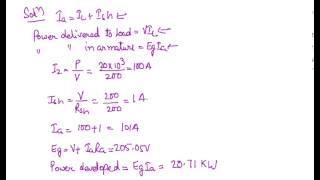 Solⁿ) Ia = IL + Ish
Power delivered to load = VIL
" " in armature = EgIa
IL = P/V = 20×10³/200 = 100A
Ish = V/Rsh = 200/200 = 1A
Ia = 100+1 = 101A
Eg = V + IaRa = 205.05V
Power developed = EgIa = 20.71 KW